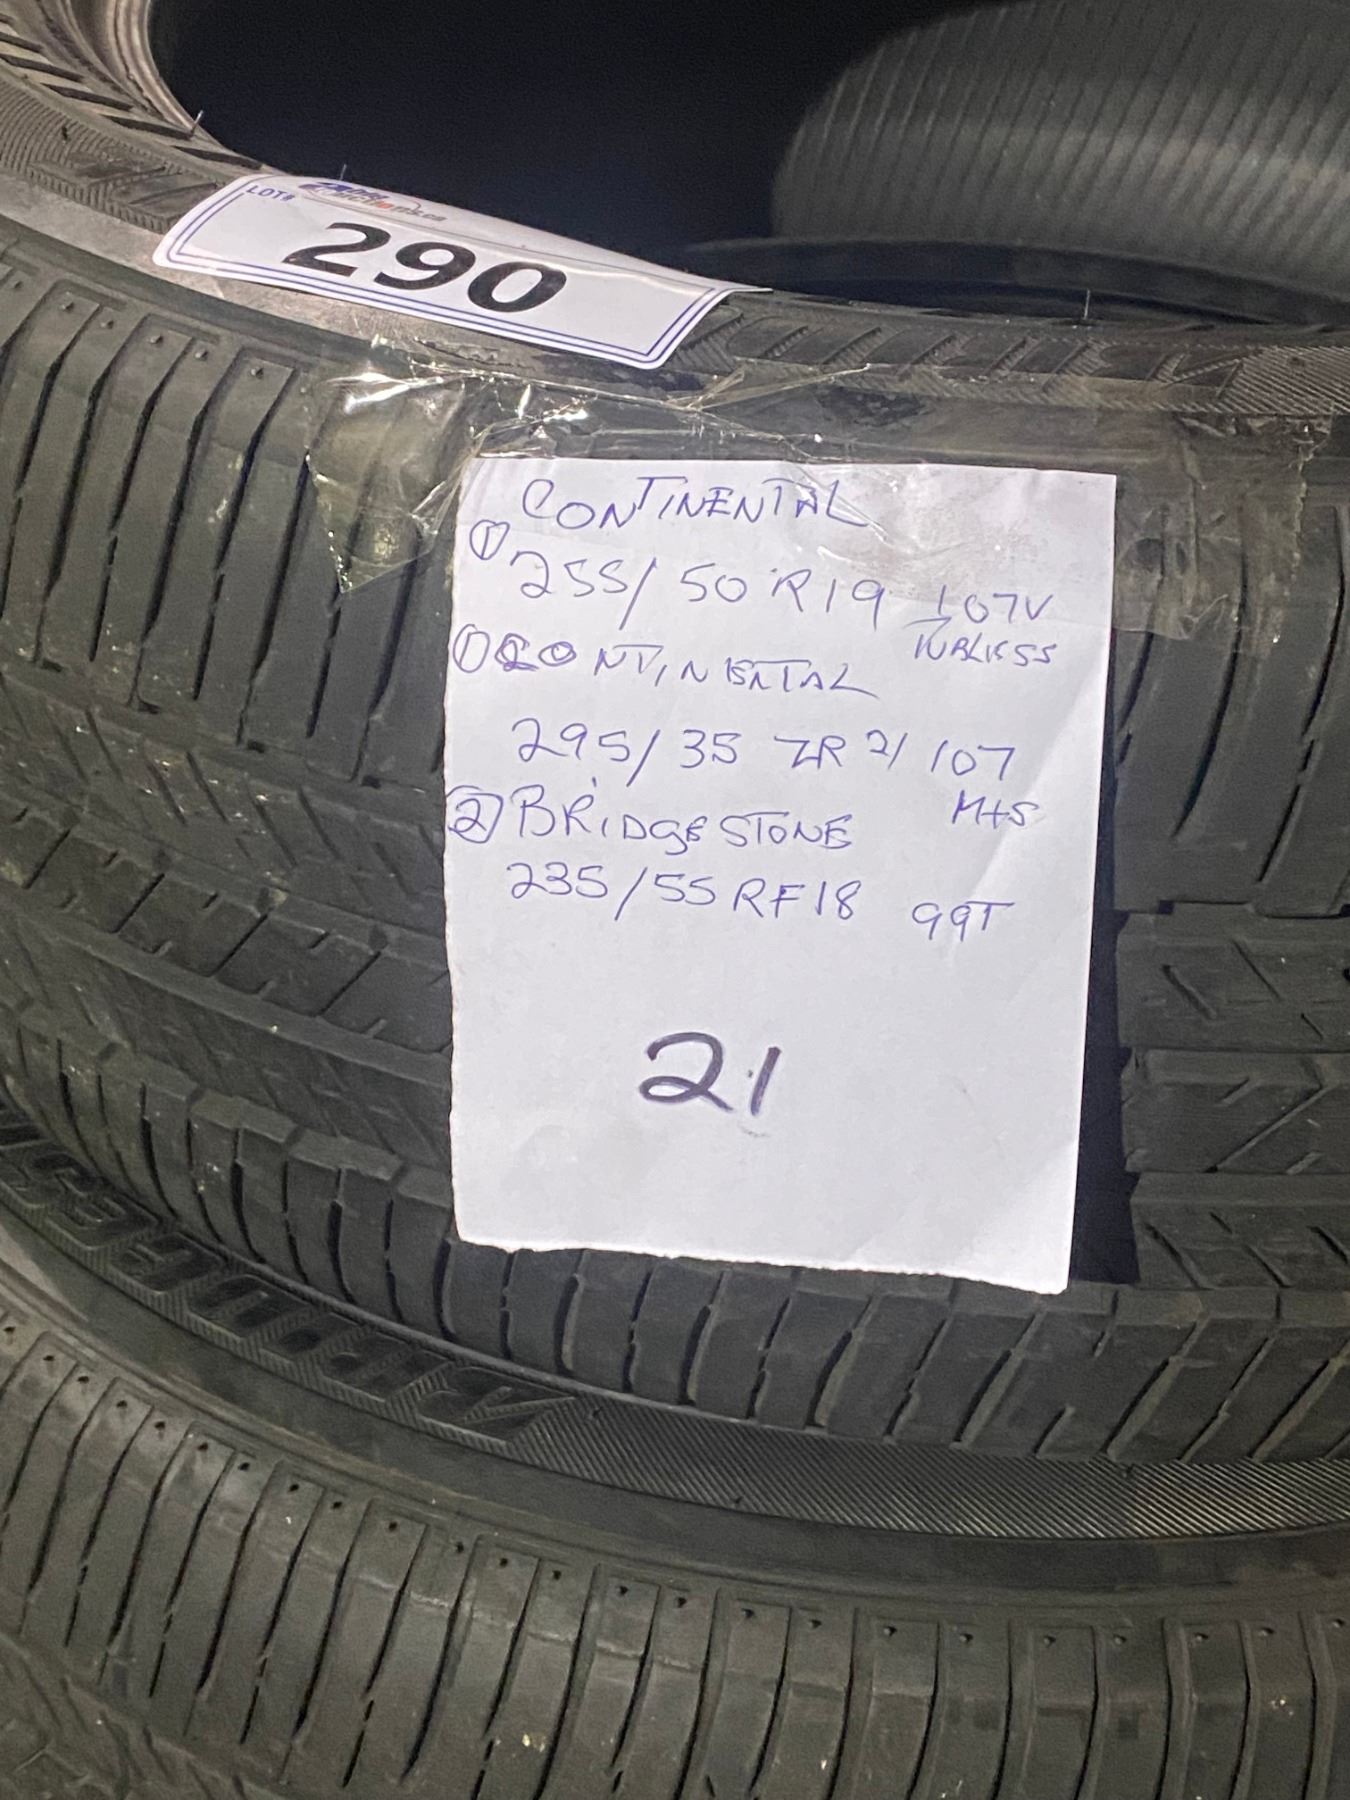 LOT#
290
CONTINENTAL
① 255/50 R19 107V
① CONTINENTAL
295/35 ZR 21 107
M+S
② BRIDGESTONE
235/55 RF18 99T
21